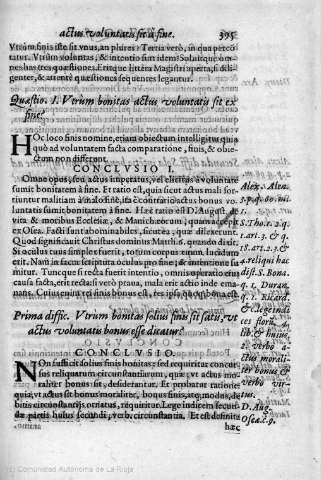 actus voluntatis sit à fine. 395
Vtrùm finis iste sit vnus, an plures? Tertia verò, in qua percō
tatur. Vtrùm voluntas, & intentio sint idem? Solaitque ō-
mnes has tres quæstiones. Eritque littera Magistri aperta, si dili-
genter, & attentè quæstiones sequentes legantur.
Quæstio. I. Vtrùm bonitas actus voluntatis sit ex
fine?
HOc loco finis nomine, etiam obiectum intelligitur quia
quò ad voluntatem facta comparatione, finis, & obie-
ctum non differunt.
CONCLVSIO I.
Omne opus, seu actus imperatus, vel elicitus à voluntate
sumit bonitatem à fine. Et ratio est, quia sicut actus mali sor-
tiuntur malitiam à malo fine, ita è contrario actus bonus vo
luntatis sumit bonitatem à fine. Hæc ratio est D. August. de
vita & moribus Ecclesiæ, & Manichæorum, quam accepit
ex Osea. Facti sunt abominabiles, sicut ea, quæ dilexerunt.
Quod significauit Christus dominus Matth. 6. quando dixit.
Si oculus tuus simplex fuerit, totum corpus tuum, lucidum
erit. Nam in sacra scriptura oculus pro fine, & intentione su
mitur. Tunc que si recta fuerit intentio, omnis operatio eius
causa facta, erit recta: si verò praua, mala erit actio inde ema-
nans. Cuius enim rei finis bonus est, res ipsa
Prima diffic. Vtrum bonitas solius finis sit satis, vt
actus voluntatis bonus esse dicatur?
CONCLVSIO.
NOn sufficit solius finis bonitas; sed requiritur concur-
sus reliquarum circunstantiarum, quæ, vt actus mo-
raliter bonus sit, desiderantur. Et probatur ratione
quia, vt actus sit bonus moraliter, bonus finis, atq; modus, de
bitis circunstantijs ornatus, requiritur. Lege indicem secun-
dæ partis huius secundi, verb. circunstantia. Et est definita
hæc
Alex. Alen.
3. p. q. 80. mē.
1.
S. Tho. 1. 2. q.
1. art. 3. & q.
18. art. 2. 3. &
4. reliqui hac
dist. S. Bona.
q. 1. Duran.
q. 1. Ricard.
& lege indi
ces
lib. ge finis:
& verbo a-
ctus morali-
ter bonus &
verbo vir-
tus.
D. Aug.
Oseæ c. 9.
(c) Comunidad Autónoma de La Rioja